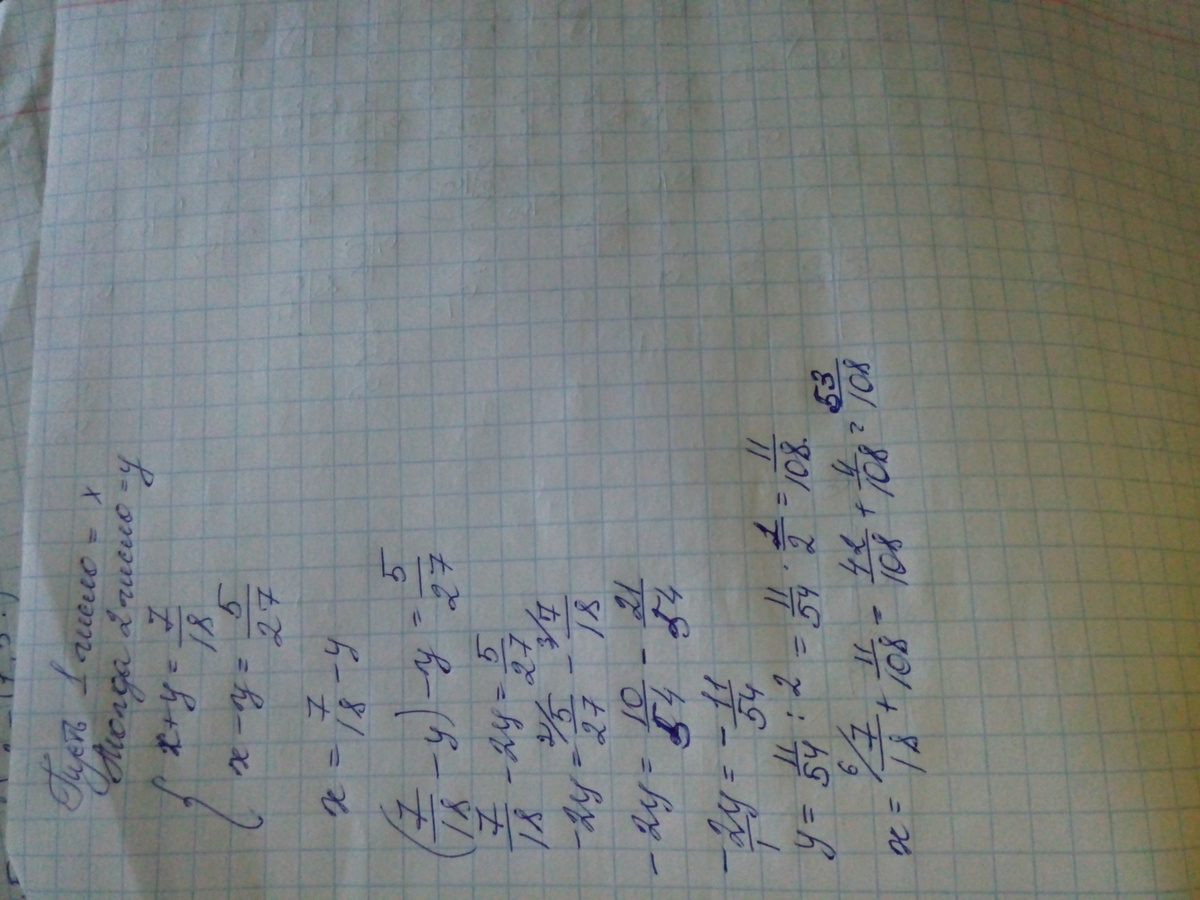 Пусть 1 число = x
Тогда 2 число = y
{ x + y = 7/18
x - y = 5/27
x = 7/18 - y
(7/18 - y) - y = 5/27
7/18 - 2y = 5/27
-2y = 2/ 5/27 - 3/ 7/18
-2y = 10/54 - 21/54
-2y/1 = -11/54
y = 11/54 : 2 = 11/54 · 1/2 = 11/108.
x = 6/ 7/18 + 11/108 = 42/108 + 11/108 = 53/108